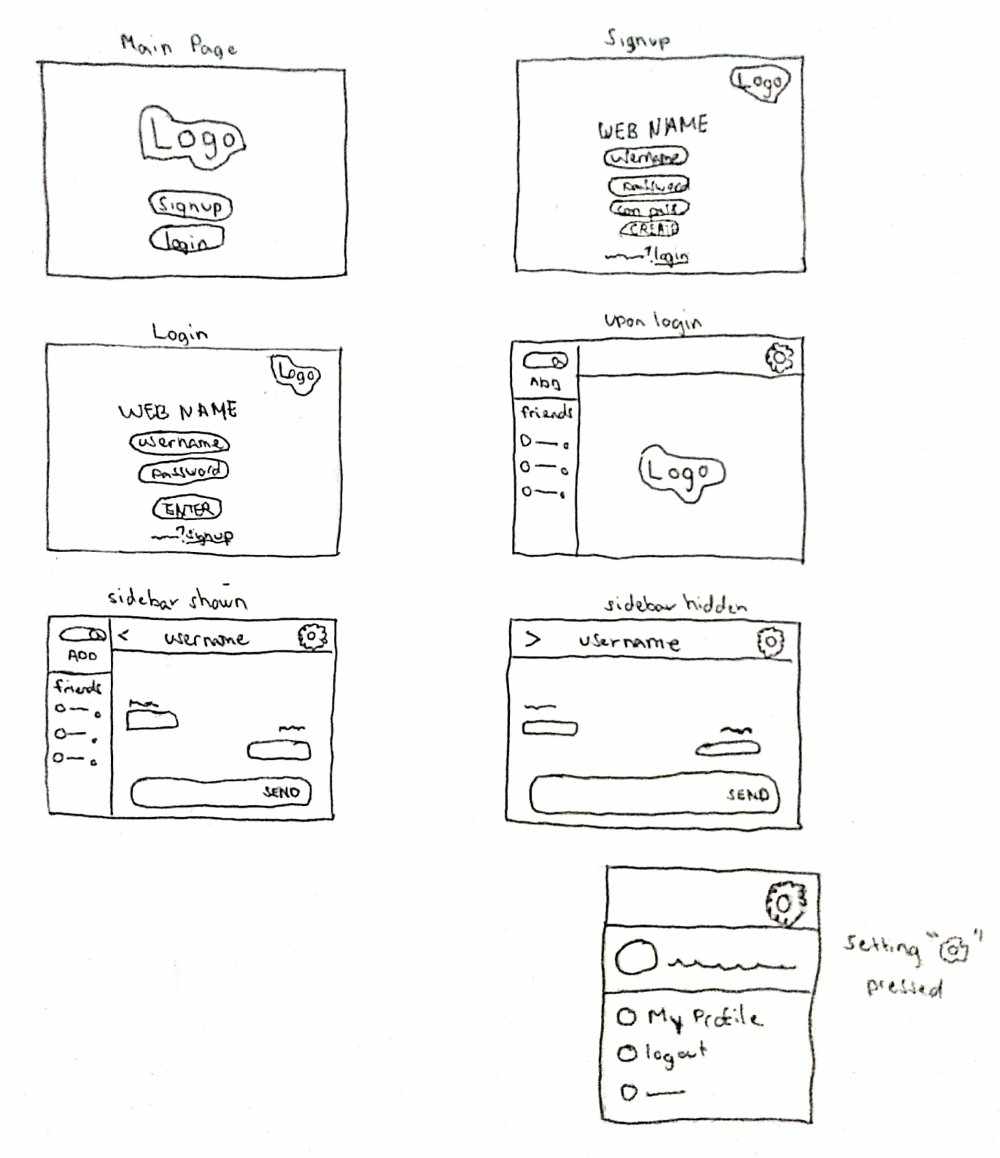 Main Page
Logo
Signup
login
Signup
Logo
WEB NAME
username
password
con pass
CREATE
?login
Login
Logo
WEB NAME
username
password
ENTER
?signup
upon login
ADD
friends
Logo
sidebar shown
< username
ADD
friends
SEND
sidebar hidden
> username
SEND
Setting " "
pressed
My Profile
logout